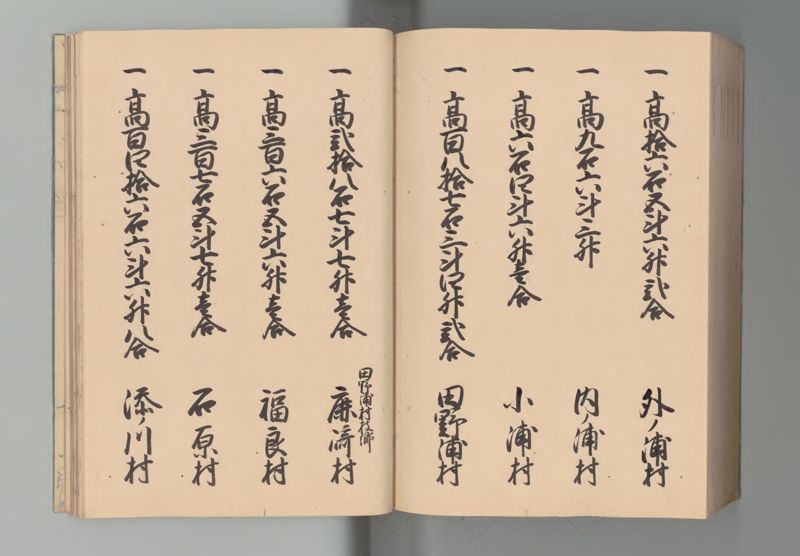 一 高拾六石五斗六升弐合 外ノ浦村
一 高九石六斗三升 内ノ浦村
一 高六石四斗六升壱合 小浦村
一 高百八拾七石三斗四升弐合 田野浦村
田野浦村枝郷
一 高弐拾八石七斗七升壱合 廉崎村
一 高三百六石五斗六升壱合 福良村
一 高三百七石五斗七升壱合 石原村
一 高百四拾六石六斗六升八合 添ノ川村